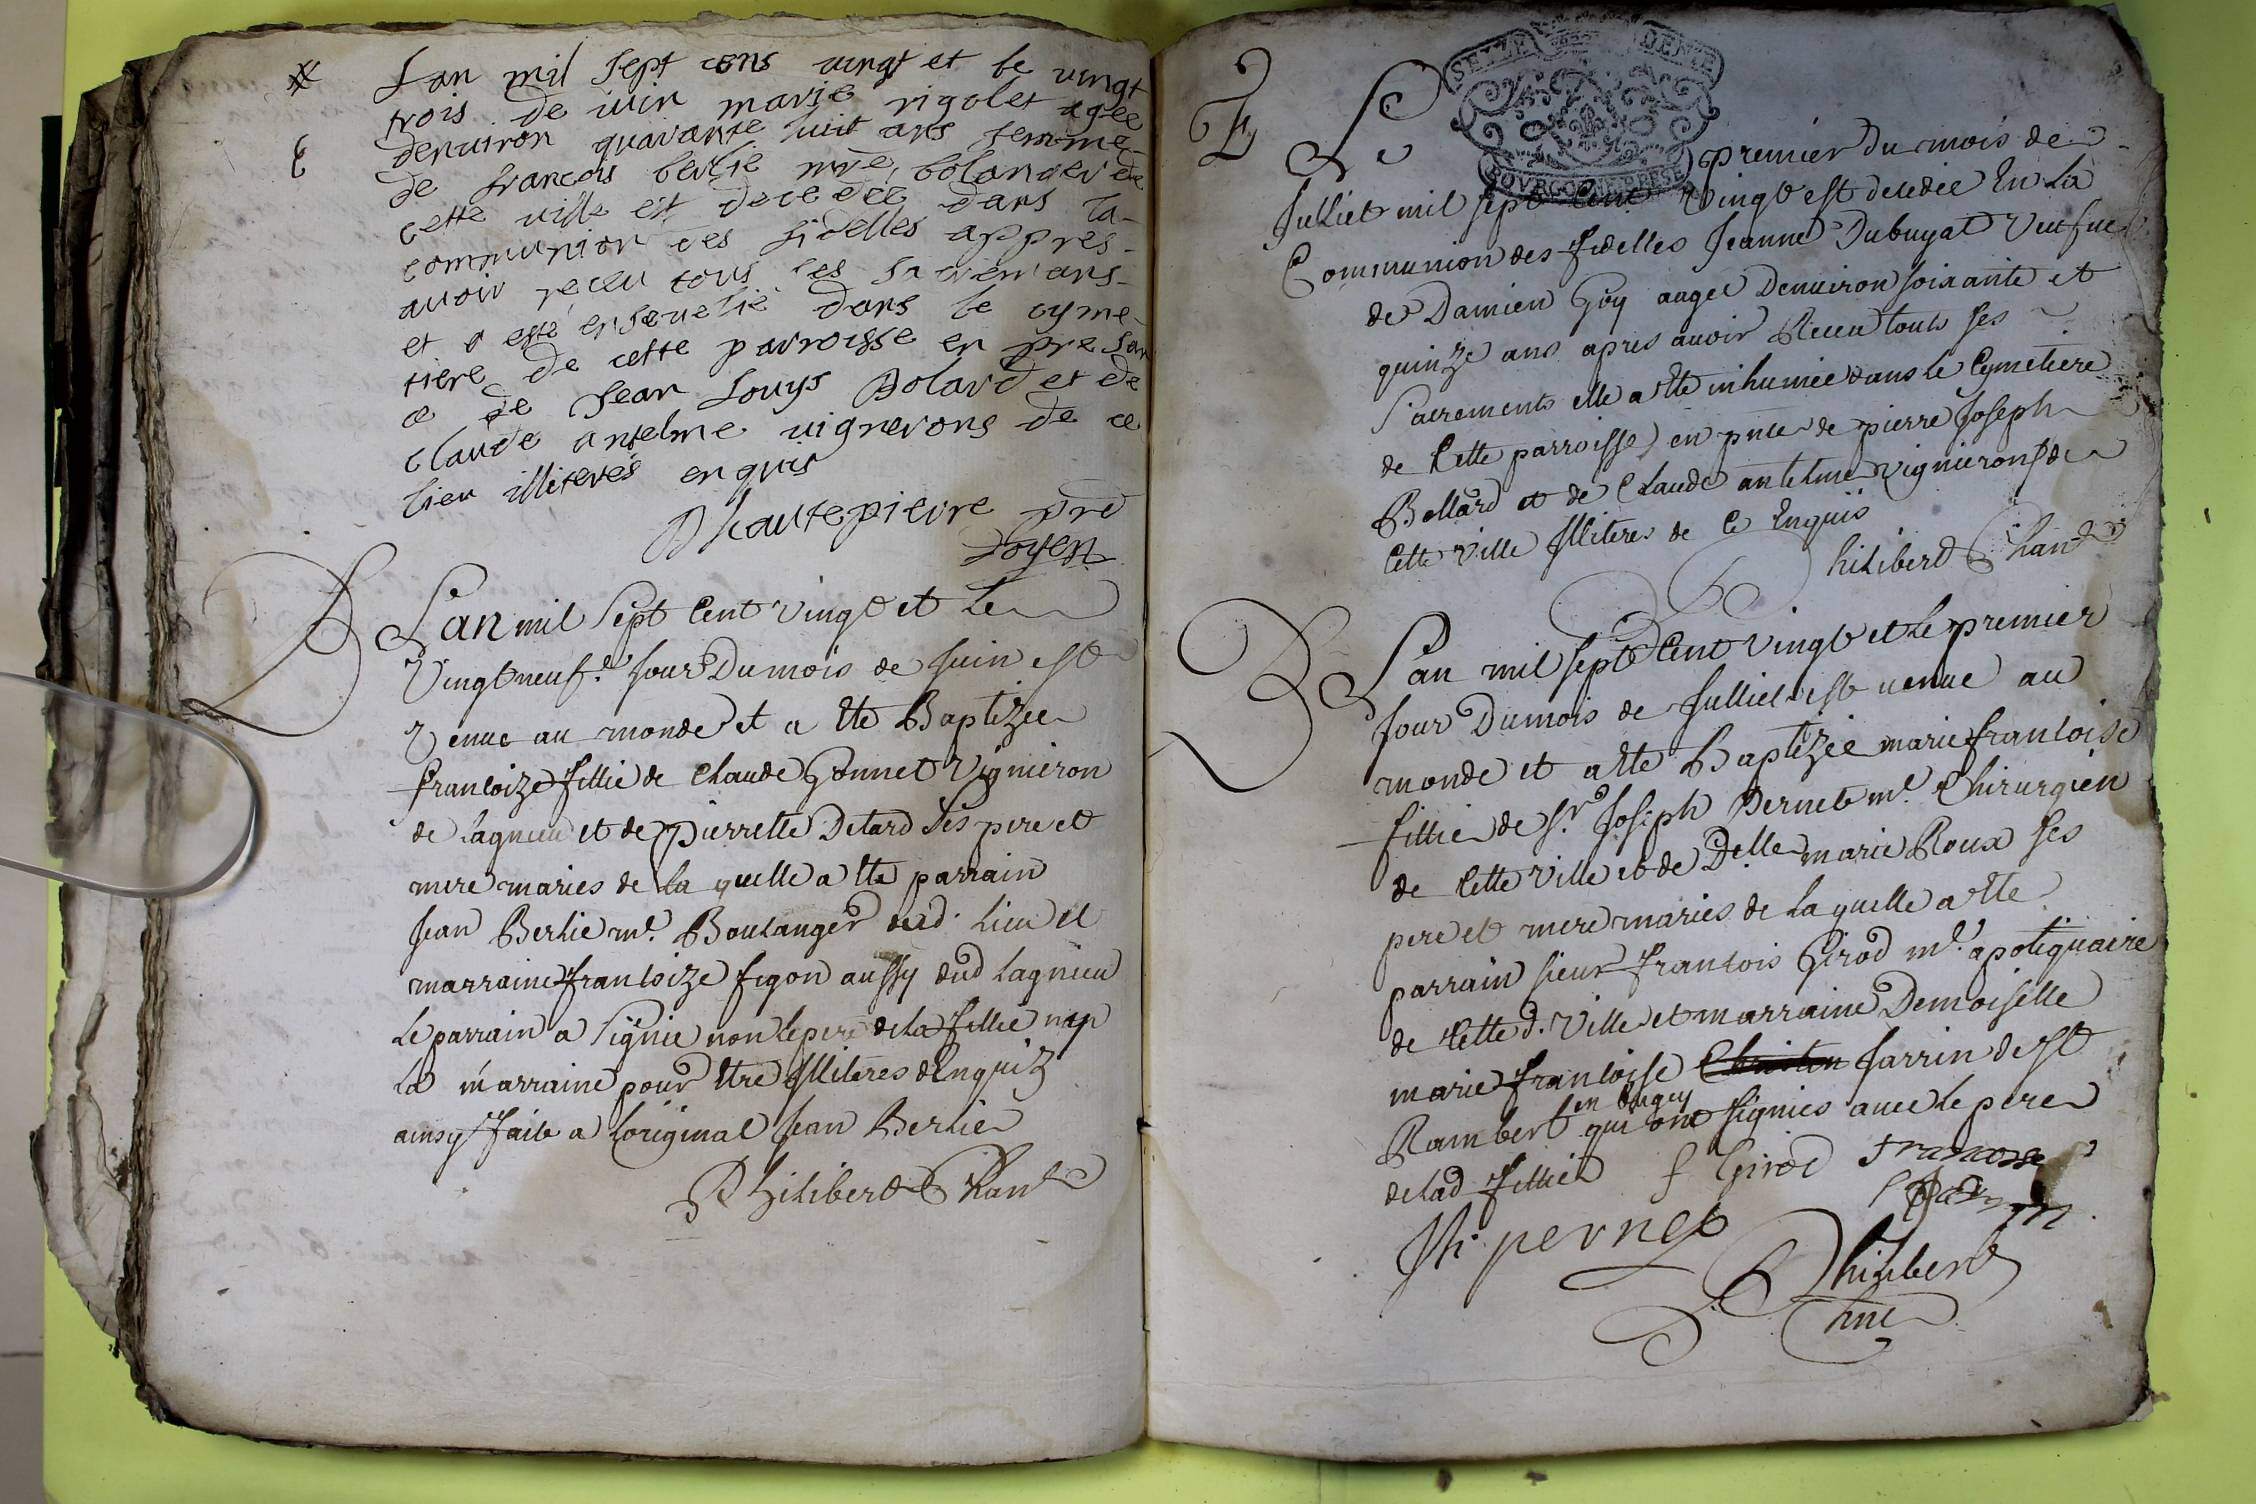 Lan mil sept cens vingt et le vingt
trois de iuin marie rigolet agee
denuiron quarante huit ans femme
de francois berlie mre bolanger de
cette ville est decedée dans la
communion des fidelles appres
auoir receu tous les sacremans
et a esté enseuelie dans le cyme
tiere de cette parroisse en presan
ce de Jean Louys Bolard et de
claude antelme vignerons de ce
lieu illiterés enquis
Dhautepierre pre
doyen
B
Lan mil sept Cent vingt et Le
Vingt neuf.e Jour Du mois de Juin est
Venue au monde et a ete Baptizée
francoize fillie de Claude Gonnet Vignieron
de lagnieu et de pierrette Detard ses pere et
mere maries de la quelle a ete parrain
Jean Berlie m.e Boulanger dud. Lieu et
marraine francoize figon aussy dud Lagnieu
Le parrain a signié non le pere de la fillie non
la marraine pour etre Illiteres d'Enquiz
ainsy faite a Loriginal Jean Berlier
Philibert Chane
E
SEIZE DEN.IE
BOVRG BRESSE
Le premier Du mois de
Julliet mil sept Cent Vingt est decedée En La
Communion des fidelles Jeanne Dubuyat Veufue
de Damien Guy augée Denuiron soixante et
quinze ans apres auoir Receu touts ses
Sacrements elle a ete inhumée dans le Cymetiere
de Cette parroisse en pnce de pierre Joseph
Bollard et de Claude antelme vignierons de
Cette Ville Illiteres de ce Enquis
Philibert Chane
B
Lan mil sept Cent Vingt et Le premier
Jour Du mois de Julliet est venue au
monde et a ete Baptizée marie francoise
fillie de Sr. Joseph Pernet m.e Chirurgien
de Cette Ville et de Delle marie Roux ses
pere et mere maries de La quelle a ete
parrain sieur francois Girod m.e apotiquaire
de Cette d. Ville et marraine Demoiselle
marie francoise Jarrin de St
en bugey
Rambert qui ont signies auec Le pere
de lad fillie f Girod francoise
Jarrin
Jh. pernet
Philibert
Chane